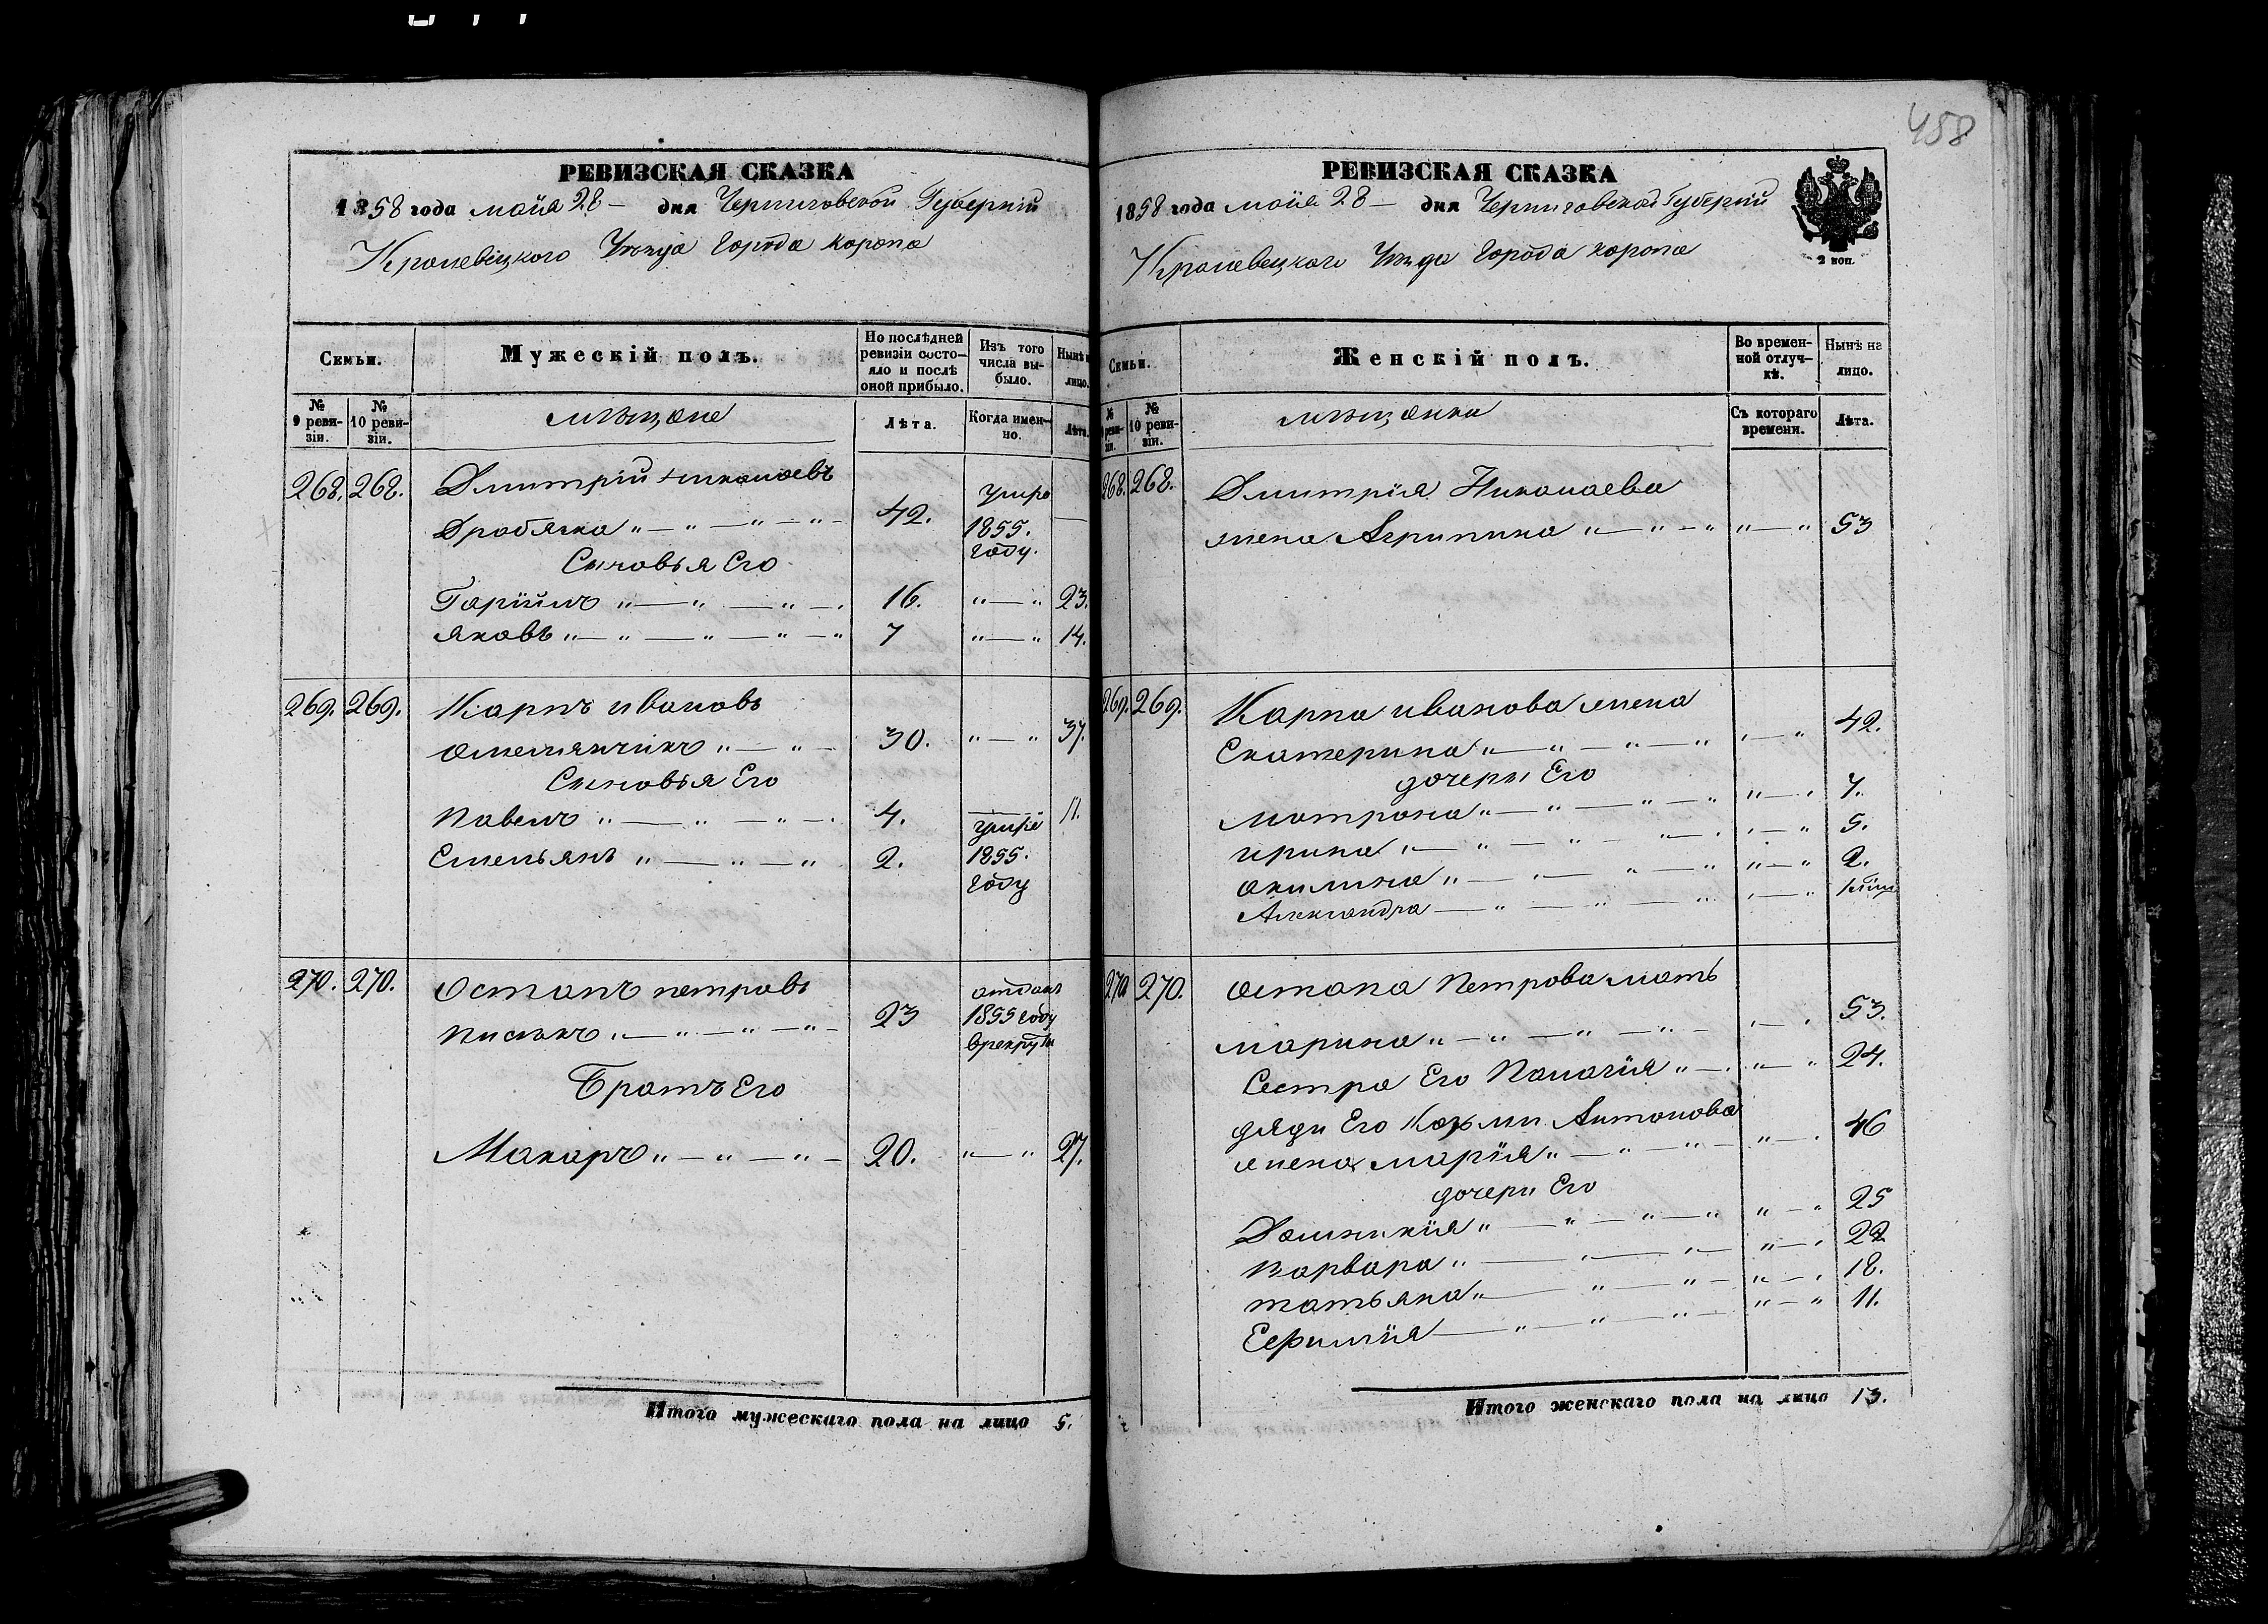 458
РЕВИЗСКАЯ СКАЗКА
1858 года мойя 28 — дня Черниговской Губерніи
Кролевецкого Уѣзда Города Коропа
Семьи.
Мужескій полъ.
По послѣдней ревизіи состояло и послѣ оной прибыло.
Изъ того числа выбыло.
Нынѣ на лицо.
№ 9 ревизіи.
№ 10 ревизіи.
мѣщане
Лѣта.
Когда именно.
Лѣта.
268. 268. Дмитрій Николаевъ
Дробязка 42. умре 1855. году. —
Сыновья Его
16. 23.
Яковъ 7 14.
269. 269. Карпъ ивановъ
Омельянчикъ 30. 37.
Сыновья Его
Павелъ 4. 11.
Емельянъ 2. умре 1855. году
270. 270. Остапъ петровъ
23 отданъ 1855 году врекруты
Братъ Его
Макаръ 20. 27.
Итого мужескаго пола на лицо 5.
РЕВИЗСКАЯ СКАЗКА
1858 года мойя 28 — дня Черниговской Губерніи
Кролевецкаго Уѣзда Города Коропа
2 коп.
Семьи.
Женскій полъ.
Во временной отлучкѣ.
Нынѣ на лицо.
№ 9 ревизіи.
№ 10 ревизіи.
мѣщанки
Съ котораго времени.
Лѣта.
268. 268. Дмитрія Николаева
жена Агрипина 53
269. 269. Карпа иванова жена
Екатерина 42.
дочери Его
Мотрона 7.
ирина 5.
акилина 2.
Александра
270 270. Остапа Петрова мать
марина 53.
Сестра Его Палагія 24.
дяди Его Козьми Антонова
жена марія 46
дочери Его
Домникія 25
Варвара 22
татьяна 18.
Ефимія 11.
Итого женскаго пола на лицо 13.